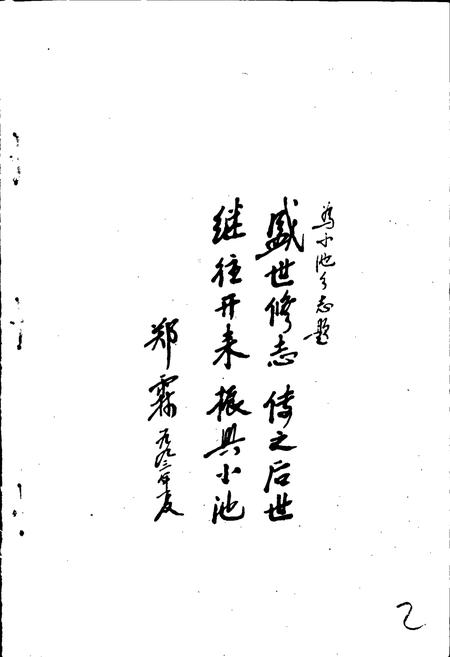 为小池乡志题
盛世修志 传之后世
继往开来 振兴小池
郑霖 一九九三年夏
2